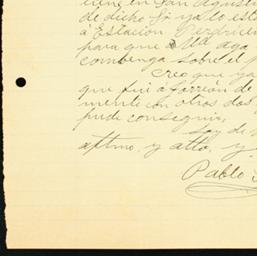 tiene en San Agusti
de dicho Sr ya lo est
a Estación
para que a Ud aga
combenga sobre el p
Creo que ya
que fui a Torreón de
mente con otros dos
pude conseguir,
Soy de
aptmo. y atto. y
Pablo